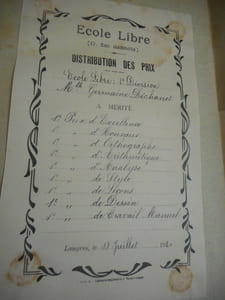 Ecole Libre
DISTRIBUTION DES PRIX
Ecole Libre: 1e Division
Mlle Germaine Déchanet
A MÉRITÉ
1er Prix d'Excellence
1er " d'Honneur
1er " d'Orthographe
1er " d'Arithmétique
1er " d'Analyse
1er " de Style
1er " de Leçons
1er " de Dessin
1er " de Travail Manuel
Langres, le Juillet